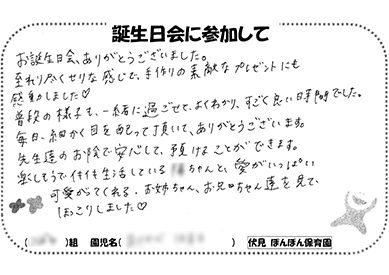 誕生日会に参加して
お誕生日会、ありがとうございました。
至れり尽くせりな感じで、手作りの素敵なプレゼントにも
感動しました♡
普段の様子も、一緒に過ごせて、よくわかり、すごく良い時間でした。
毎日、細かく目を配って頂いて、ありがとうございます。
先生達のお陰で安心して、預けることができます。
楽しそうでイキイキ生活している 陽ちゃんと、愛がいっぱい
可愛がてくれる、お姉ちゃん、お兄ちゃん達を見て、
ほっこりしました♡
( )組 園児名( )
伏見 ぽんぽん保育園